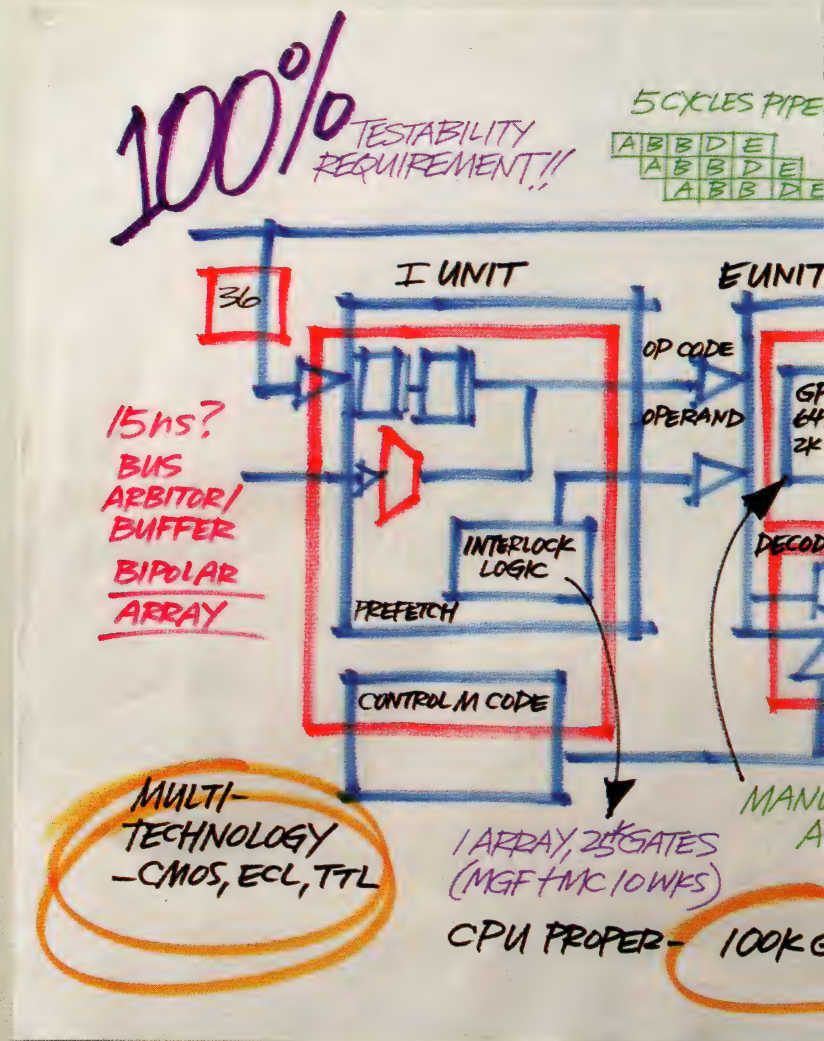 100%
TESTABILITY
REQUIREMENT!!
5 CYCLES PIPE
A B B D E
A B B D E
A B B D E
36
I UNIT
E UNIT
OP CODE
OPERAND
15ns?
BUS
ARBITOR/
BUFFER
BIPOLAR
ARRAY
INTERLOCK
LOGIC
PREFETCH
64
2K
DECOD
CONTROL M CODE
MULTI-
TECHNOLOGY
-CMOS, ECL, TTL
1 ARRAY, 25K GATES
(MGF + MC 10 WKS)
MANU
A
CPU PROPER- 100K G